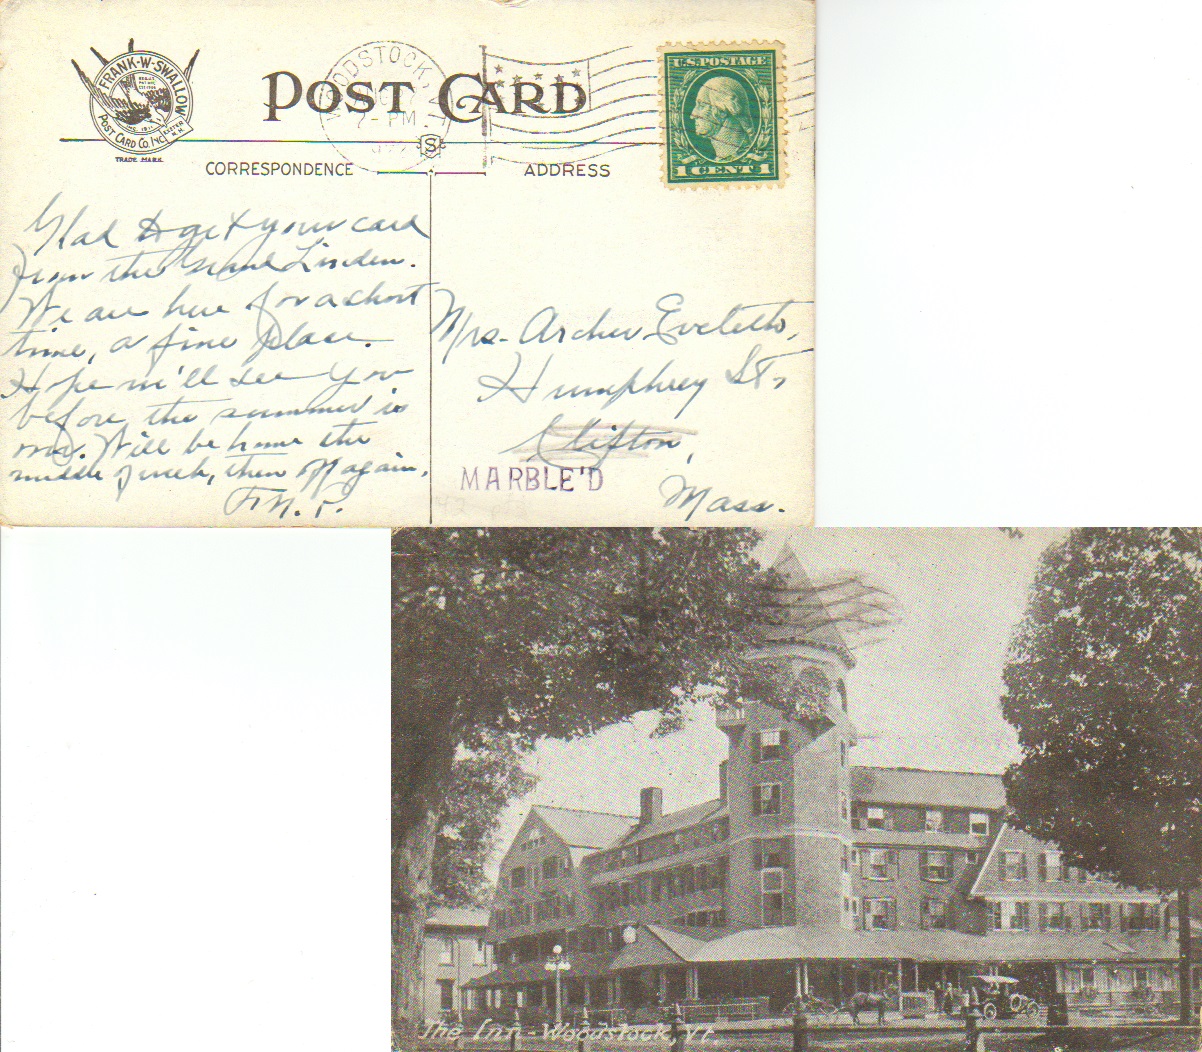 FRANK-W-SWALLOW
POST CARD CO. INC.
EXETER N.H.
TRADE MARK.
POST CARD
WOODSTOCK, VT
7- PM
S
U.S. POSTAGE
1 CENT 1
CORRESPONDENCE
ADDRESS
Glad to get your card
from the Linden.
We are here for a short
time, a fine place.
Hope we'll see you
before the summer is
over. Will be home the
middle of week, then off again.
Mrs. Archer
Humphrey St,
Clifton,
MARBLE'D
Mass.
The Inn-Woodstock, Vt.